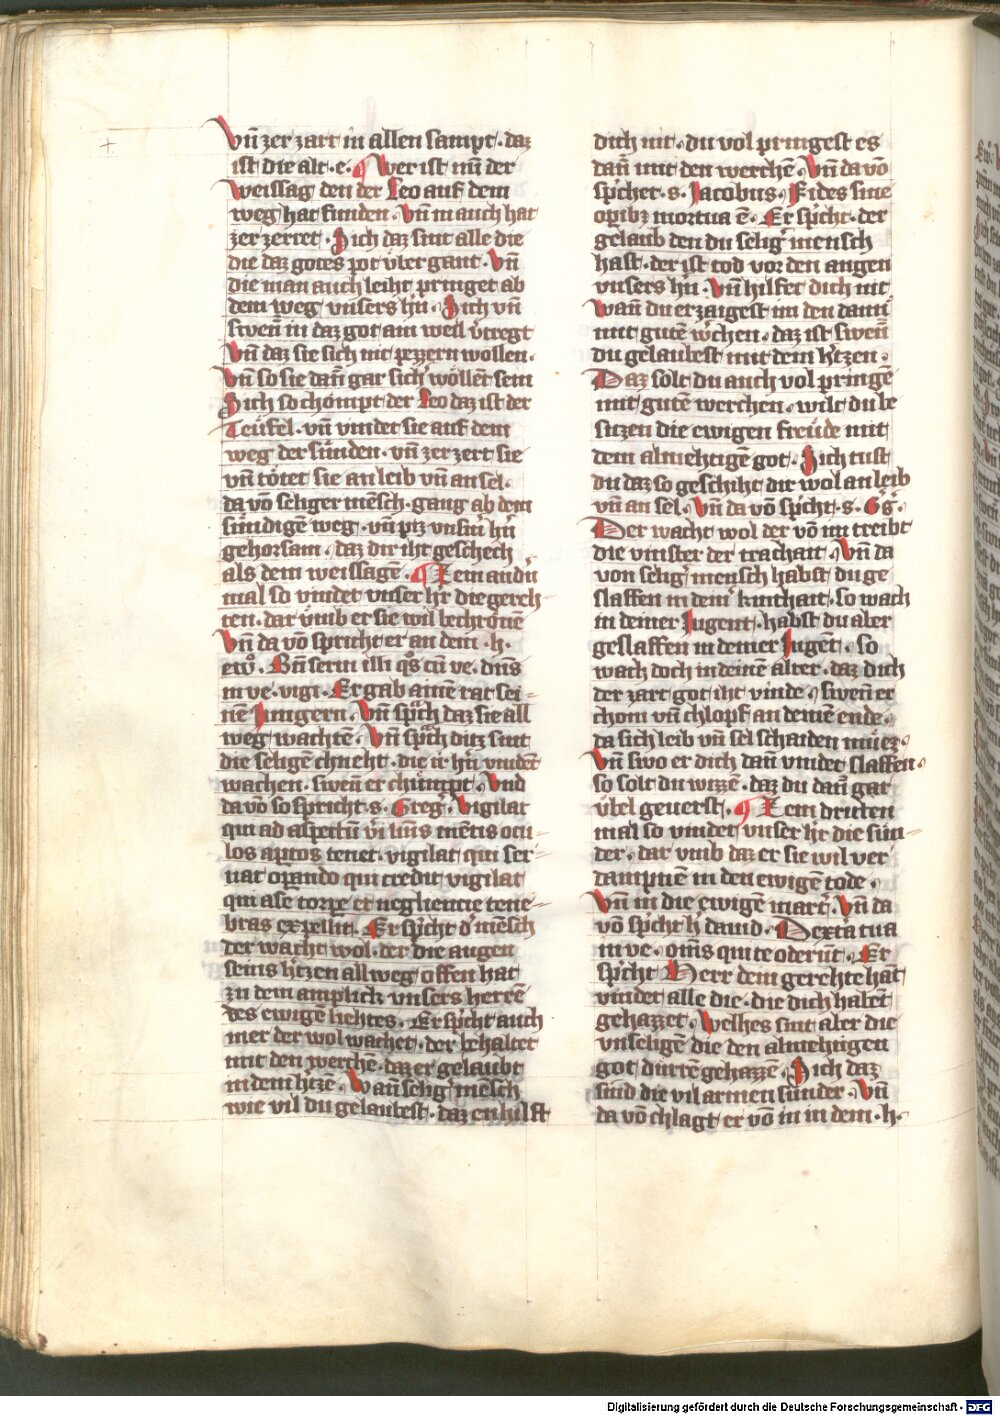 Vn̄ zer zart in allen sampt · daz
ist die alt · e · ¶ Wer ist nu der
Weissag den der Leo auf dem
weg hat funden · Vn̄ in auch hat
zer zerret · Ich daz sint alle die
die daz gotes pot vber gant · Vn̄
die man auch leiht pringet ab
dem weg vnsers hn̄ · Ich vn̄
swen̄ in daz got ain weil v̓tregt
Vn̄ daz sie sich nit pezzern wollen ·
Vn̄ so sie dan̄ gar sich̓ wöllēt sein
Ich so chompt der Leo daz ist der
Teüfel · vn̄ vindet sie auf dem
weg der sünden · vn̄ zer zert sie
vn̄ tötet sie an leib vn̄ an sel ·
da vō seliger mēsch · gang ab dem
sündigē weg · vn̄ piz vnserm̄ hn̄
gehorsam · daz dir iht geschech
als dem weissagē · ¶ Zem andn̄
mal so vindet vnser hr̄ die gerech
ten · dar vmb er sie wil bechronē
Vn̄ da vō spricht er an dem · h ·
ew̄ · Bn̄ serui illi qs̄ cū ve · dn̄s
in ve · vigi · Er gab ainē rat sei-
nē Jungern · Vn̄ sprach daz sie all
weg wachtē · Vn̄ sprach ditz sint
die seligē chneht · die ir hn̄ vindet
wachen · swen̄ er chümpt · Vnd
da vō so spricht · s · Greg̓ · Vigilat
qui ad aspectū v̓i lūis mētis ocu-
los aptos tenet · vigilat qui ser-
uat opando qui credit vigilat
qui a se torpe et negliencie tene-
bras expellit · Er sp̓cht d̓ mēsch
der wacht wol · der die augen
seins h̓tzen allweg offen hat
zu dem amplick vnsers herrē
des ewigē liehtes · Er sp̓cht auch
mer der wol wachet · der behaltet
mit den werchē · daz er gelaubt
in dem h̓tzē · Wan̄ selig̓ mēsch
wie vil du gelaubest · daz en hilft
dich nit · du vol pringest es
dan̄ mit den werchē · Vn̄ da vō
sp̓chet · s · Jacobus · Fides sine
opibꝫ mortua ē · Er sp̓cht · der
gelaub den du selig̓ mensch
hast · der ist tod vor den augen
vnsers hn̄ · Vn̄ hilfet dich nit
Wan̄ du erzaigest im den dann
mit gutē w̓chen · daz ist swen̄
du gelaubest mit dem h̓tzen ·
Daz solt du auch vol pringē
mit gutē werchen · wilt du be
sitzen die ewigen freüde mit
dem almehtigē got · Ich tust
du daz so geschiht dir wol an leib
vn̄ an sel · Vn̄ da vō sp̓cht · s · Gg̓ ·
Der wacht wol der vō im treibt
die vinster der trachait · Vn̄ da
von selig̓ mensch habst du ge
slaffen in dein̓ kinthait · so wach
in deiner Jugent · habst du aber
geslaffen in deiner Jugēt · so
wach doch in deinē alter · daz dich
der zart got iht vinde · swen̄ er
chom vn̄ chlopf an deinē ende ·
da sich leib vn̄ sel schaiden müez ·
Vn̄ swo er dich dan̄ vindet slaffen ·
so solt du wizzē · daz du dan̄ gar
v̓bel geuerst · ¶ Zem dritten
mal so vindet vnser hr̄ die sün-
der · dar vmb daz er sie wil ver
dampnē in den ewigē tode ·
Vn̄ in die ewigē mart̓ · Vn̄ da
vō sp̓cht h̓ dauid · Dextera tua
in ve · om̄s qui te oderūt · Er
sp̓cht Herr dein gerechte hat
vindet alle die · die dich habēt
gehazzet · Welhes sint aber die
vnseligē die den almehtigen
got dürrē gehazzē · Ich daz
sind die vil armen sünder · Vn̄
da vō chlagt er vō in in dem · h ·
Digitalisierung gefördert durch die Deutsche Forschungsgemeinschaft - DFG